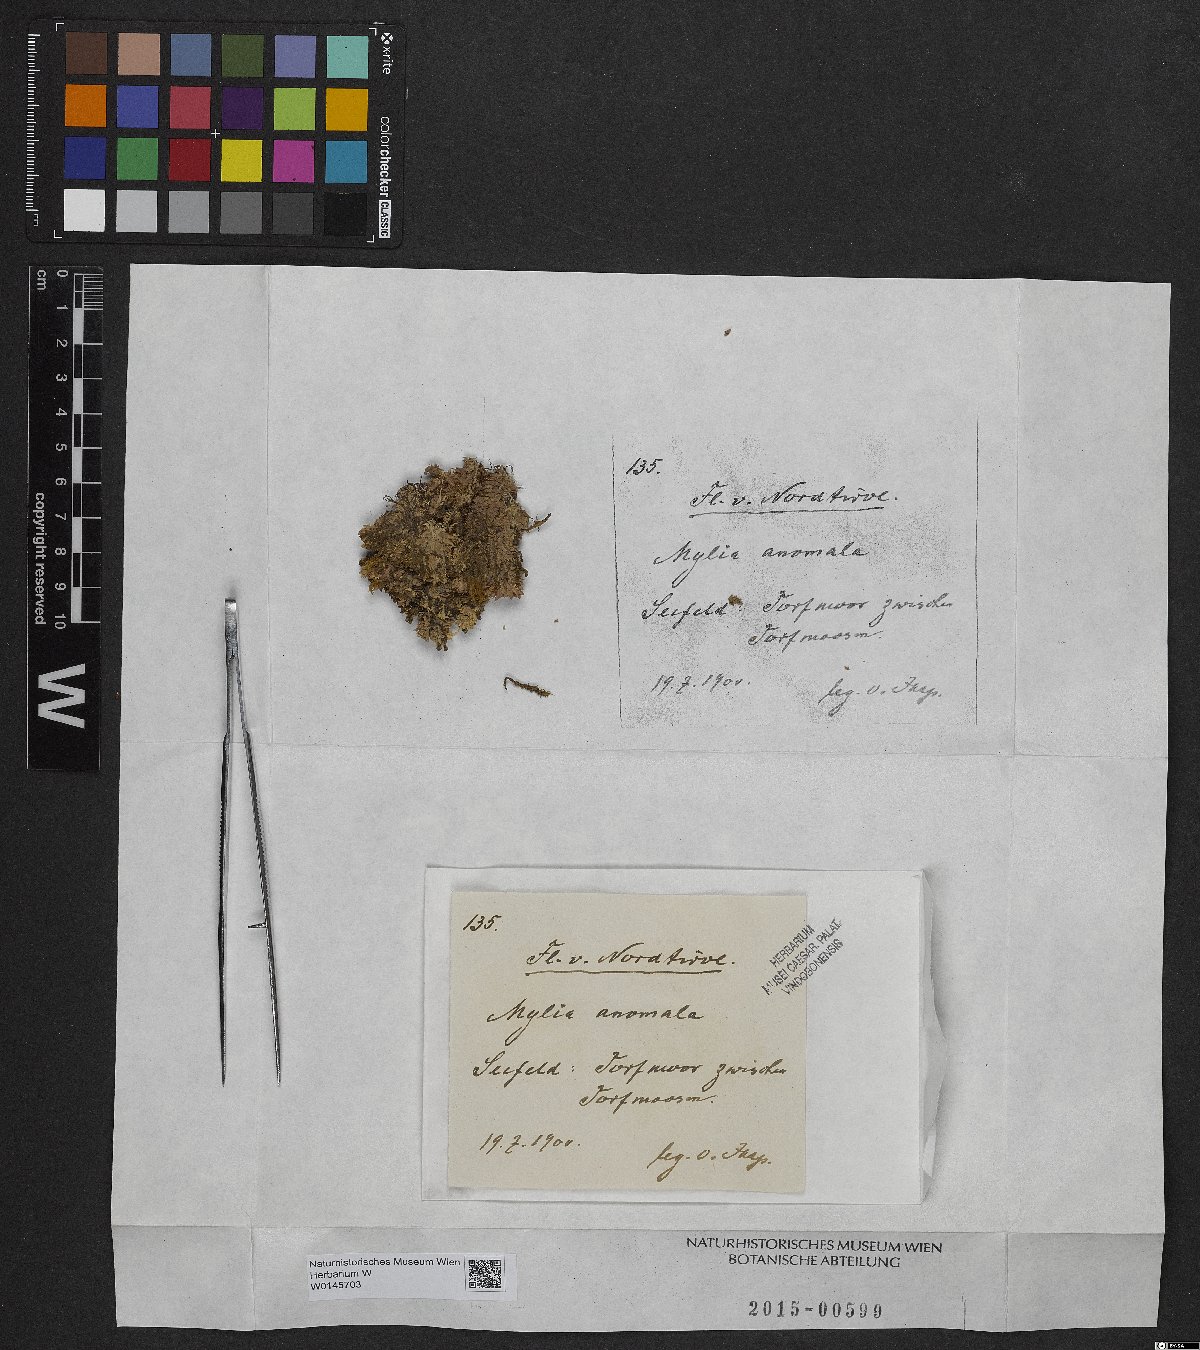 x-rite
colorchecker CLASSIC
cm
0 1 2 3 4 5 6 7 8 9 10
copyright reserved
W
135.
Fl. v. Nordtirol.
Mylia anomala
Seefeld: Torfmoor zwischen
Torfmoosen.
19.7.1900.
leg. v.
135.
Fl. v. Nordtirol.
Mylia anomala
Seefeld: Torfmoor zwischen
Torfmoosen.
19.7.1900.
leg. v.
HERBARIUM
MUSEI CAESAR. PALAT.
VINDOBONENSIS
NATURHISTORISCHES MUSEUM WIEN
BOTANISCHE ABTEILUNG
2015-00599
Naturhistorisches Museum Wien
Herbarium W
W0145703
BY-SA